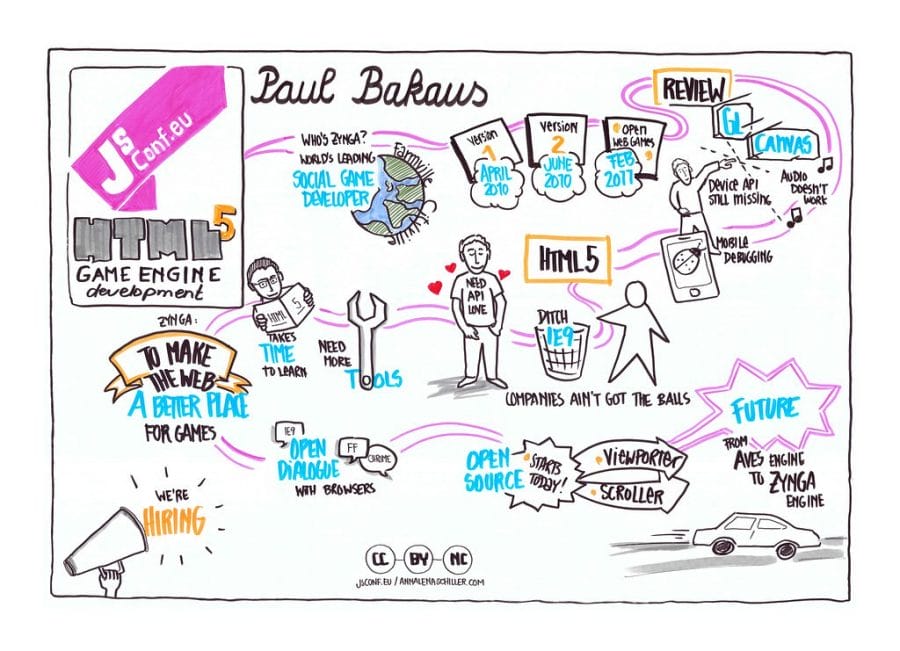 JS
Conf.eu
HTML5
GAME ENGINE
development
Paul Bakaus
WHO'S ZYNGA?
WORLD'S LEADING
SOCIAL GAME
DEVELOPER
Version
1
APRIL
2010
VERSION
2
JUNE
2010
OPEN
WEB GAMES
FEB
2011
REVIEW
GL
CANVAS
DEVICE API
STILL MISSING
AUDIO
DOESN'T
WORK
MOBILE
DEBUGGING
HTML5
DITCH
IE9
COMPANIES AIN'T GOT THE BALLS
NEED
API
LOVE
NEED
MORE
TOOLS
HTML
5
TAKES
TIME
TO LEARN
ZYNGA:
TO MAKE
THE WEB
A BETTER PLACE
FOR GAMES
IE9
FF
CHROME
OPEN
DIALOGUE
WITH BROWSERS
OPEN
SOURCE
STARTS
TODAY!
VIEWPORTER
SCROLLER
FUTURE
FROM
AVES ENGINE
TO ZYNGA
ENGINE
WE'RE
HIRING
CC BY NC
JSCONF.EU / ANNALENASCHILLER.COM